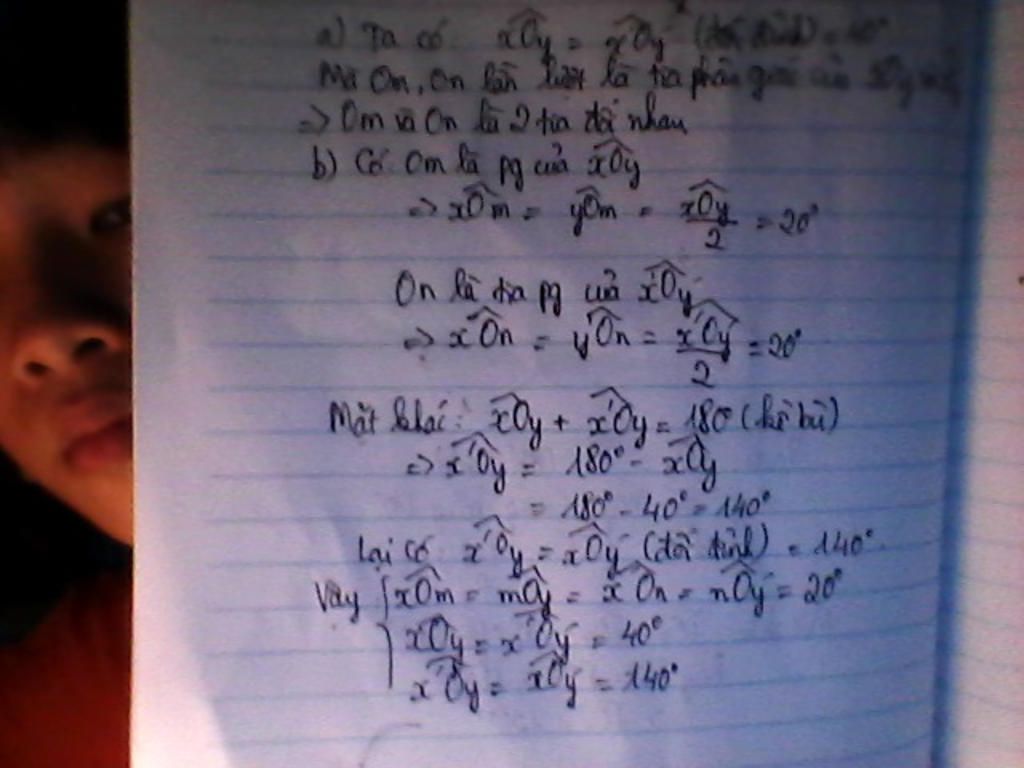 a) Ta có xÔy = x'Ôy' (đối đỉnh) = 40°
Mà Om, On lần lượt là tia phân giác của xÔy
=> Om và On là 2 tia đối nhau
b) Có Om là pg của xÔy
=> xÔm = yÔm = xÔy/2 = 20°
On là tia pg của x'Ôy'
=> x'Ôn = y'Ôn = x'Ôy'/2 = 20°
Mặt khác: xÔy + x'Ôy = 180 (kề bù)
=> x'Ôy = 180° - xÔy
= 180° - 40° = 140°
Lại có x'Ôy = xÔy' (đối đỉnh) = 140°
Vậy { xÔm = mÔy = x'Ôn = nÔy' = 20°
xÔy = x'Ôy' = 40°
x'Ôy = xÔy' = 140°